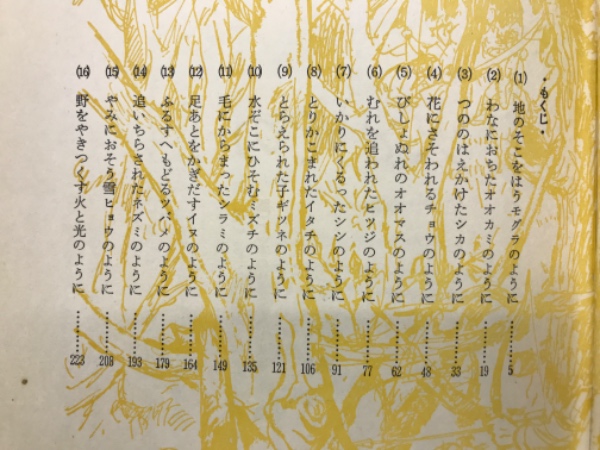 ・もくじ・
(1) 地のそこをはうモグラのように…………5
(2) わなにおちたオオカミのように…………19
(3) つののはえかけたシカのように…………33
(4) 花にさそわれるチョウのように…………48
(5) びしょぬれのオオマスのように…………62
(6) むれを追われたヒツジのように…………77
(7) いかりにくるったシシのように…………91
(8) とりかこまれたイタチのように…………106
(9) とらえられた子ギツネのように…………121
(10) 水ぞこにひそむミズチのように…………135
(11) 毛にからまったシラミのように…………149
(12) 足あとをかぎだすイヌのように…………164
(13) ふるすへもどるツバメのように…………179
(14) 追いちらされたネズミのように…………193
(15) やみにおそう雪ヒョウのように…………208
(16) 野をやきつくす火と光のように…………223